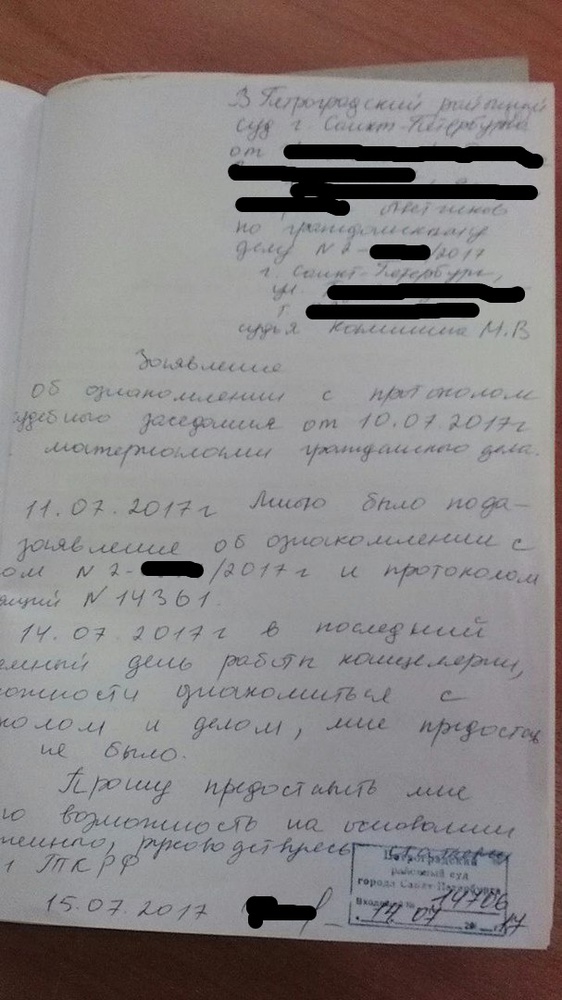 В Петроградский районный
суд г. Санкт-Петербурга
от
ответчиков
по гражданскому
делу N 2- /2017
г. Санкт-Петербург,
ул.
т.
судья М.В
Заявление
об ознакомлении с протоколом
судебного заседания от 10.07.2017г
материалами гражданского дела.
11.07.2017г Мною было пода-
заявление об ознакомлении с
ом N 2- /2017г и протоколом
N 14361.
14.07.2017г в последний
емный день работы канцелярии,
ожности ознакомиться с
колом и делом, мне предостав
не было.
Прошу предоставить мне
ю возможность на основании
женного, руководствуясь
1 ТКРФ
15.07.2017
Петроградский
районный суд
города Санкт-Петербурга
Входящий № 14706
14 07 20 17